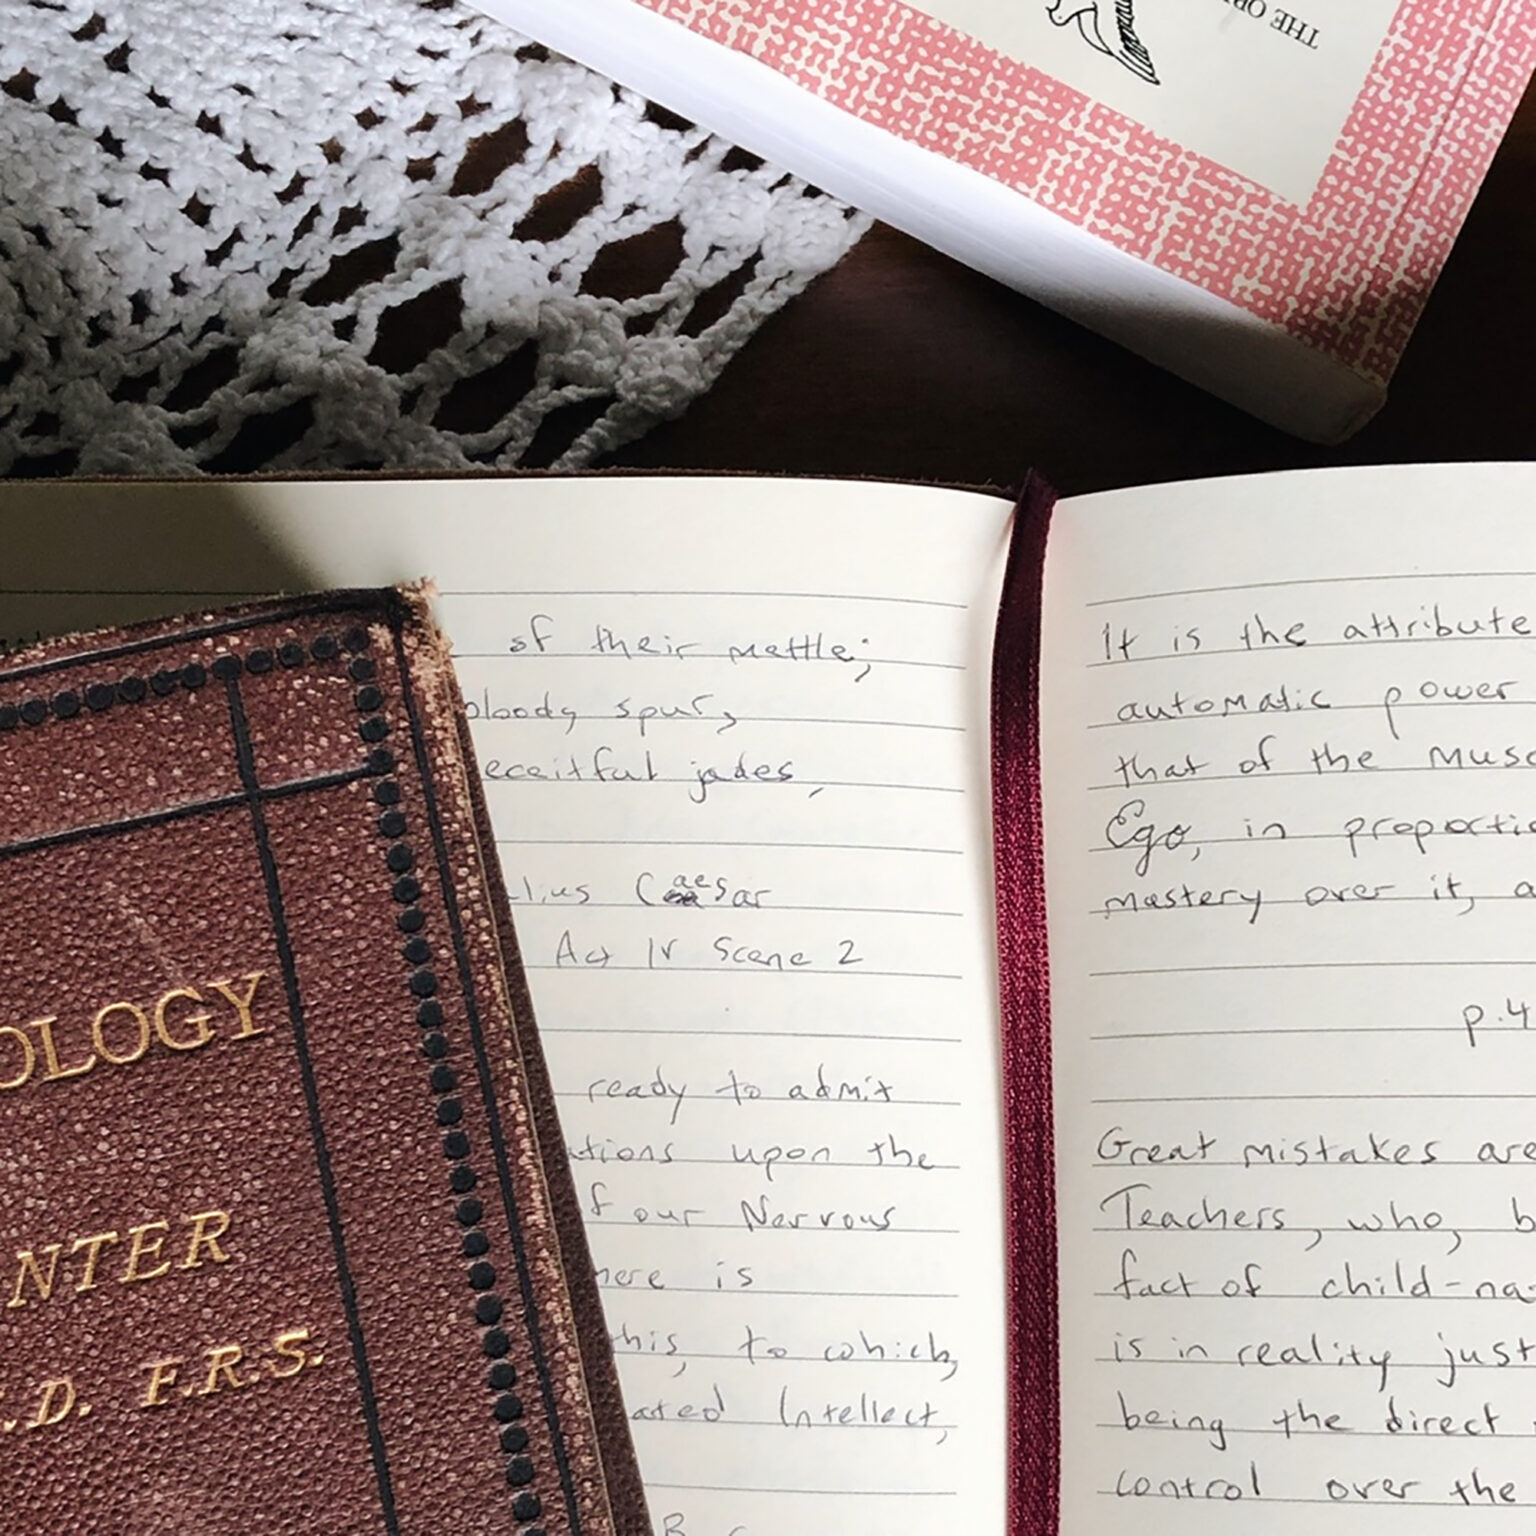 THE
of their mettle;
bloody spur,
eceitful jades,
Caesar
Act IV Scene 2
ready to admit
upon the
our Nervous
is
to which,
Intellect,
OLOGY
NTER
.D. F.R.S.
It is the attribute
automatic power
that of the Musc
Ego, in proportio
mastery over it, a
p.4
Great mistakes are
Teachers, who, b
fact of child-na
is in reality just
being the direct
control over the